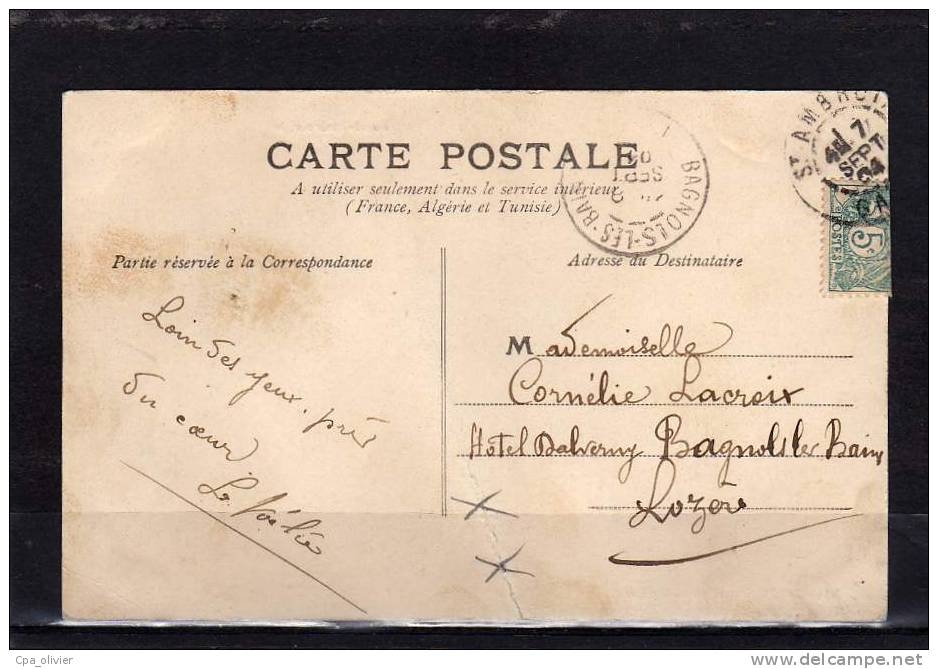 CARTE POSTALE
A utiliser seulement dans le service intérieur
(France, Algérie et Tunisie)
ST AMBROIX
7
SEPT
04
GA
BAGNOLS-LES-BAINS
SEPT
5c
POSTES
Partie réservée à la Correspondance
Adresse du Destinataire
Loin des yeux, près
du cœur
Mademoiselle
Cornélie Lacroix
Hôtel Dalverny Bagnols les Bains
Lozère
Cpa_olivier
www.delcampe.net